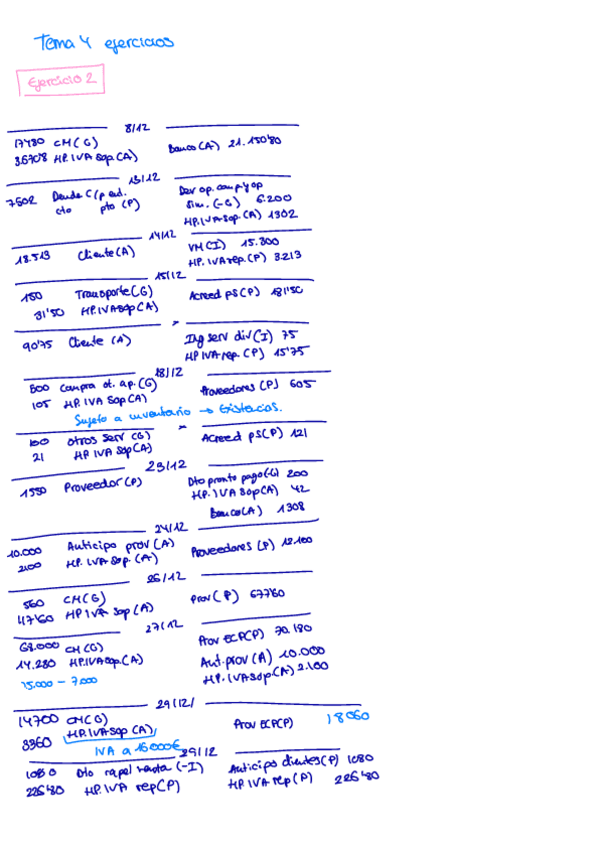 Tema 4 ejercicios
Ejercicio 2
8/12
17480 CM (G)
3670'8 HP. IVA sop. (A)
Banco (A) 21.150'80
13/12
7502 Deuda C/p ent. cto pto (P)
Dev op. comp y op sim. (-G) 6.200
HP. IVA sop. (A) 1302
14/12
18.513 Cliente (A)
VM (I) 15.300
HP. IVA rep. (P) 3.213
15/12
150 Transporte (G)
31'50 HP. IVA sop (A)
Acreed ps (P) 181'50
"
90'75 Cliente (A)
Ing serv div (I) 75
HP IVA rep. (P) 15'75
18/12
500 compra ot. ap. (G)
105 HP. IVA Sop (A)
Proveedores (P) 605
Sujeto a inventario → Existencias.
"
100 otros serv (G)
21 HP IVA sop (A)
Acreed ps (P) 121
23/12
1550 Proveedor (P)
Dto pronto pago (-G) 200
HP. IVA sop (A) 42
Banco (A) 1308
24/12
10.000 Anticipo prov (A)
2100 HP. IVA sop. (A)
Proveedores (P) 12.100
26/12
560 CM (G)
117'60 HP IVA sop (A)
Prov (P) 677'60
27/12
68.000 CM (G)
14.280 HP. IVA sop. (A)
15.000 - 7.000
Prov ECP (P) 70.180
Ant. prov (A) 10.000
HP. IVA sop. (A) 2.100
29/12/
14700 CM (G)
3360 HP. IVA sop (A)
IVA a 16000€
Prov ECP (P) 18060
29/12
1080 Dto rapel venta (-I)
226'80 HP. IVA rep (P)
Anticipo clientes (P) 1080
HP. IVA rep (P) 226'80